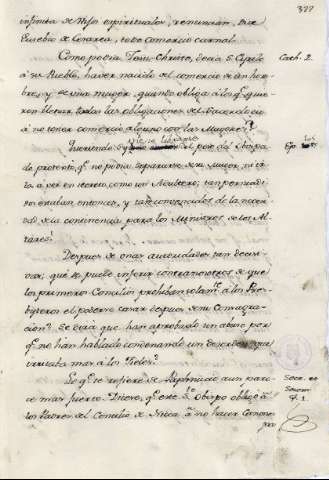 322
infinita de Hijos espirituales, renuncian, dice
Eusebio de Cesarea, todo comercio carnal.
Como podia Jesu-Christo, decia S. Cyrilo Cath. 2.
à su Pueblo, haver nacido del comercio de un hom-
bre, y de una muger, quando obliga à los qe quie-
ren llenar todas las obligaciones del Sacerdocio
à no tener comercio alguno con las Mugeres?
Queriendo Synesio librarse del peso del Obispa-
do protesta, qe no podia separarse de su muger, ni tra-
tarla en secreto, como un Adultero; tan persuadi-
dos estaban entonces, y tan convencidos de la necesi-
dad de la continencia para los Ministros de los Al-
tares!
Despues de unas autoridades tan decisi-
vas, qué se puede inferir contra nosotros de que
los primeros Concilios prohiban solamte à los Pres-
byteros el poderse casar despues de su Consagra-
cion? Se dirà que han aprobado un abuso, por
qe no han hablado condenando un desorden que
irritaba mas à los Fieles?
Lo qe se refiere de Paphnucio aun pare- Socr. et
ce mas fuerte. Dicese, qe este Sto Obispo obligò à Sozom.
los Padres del Concilio de Nicea à no hacer Canones
pa